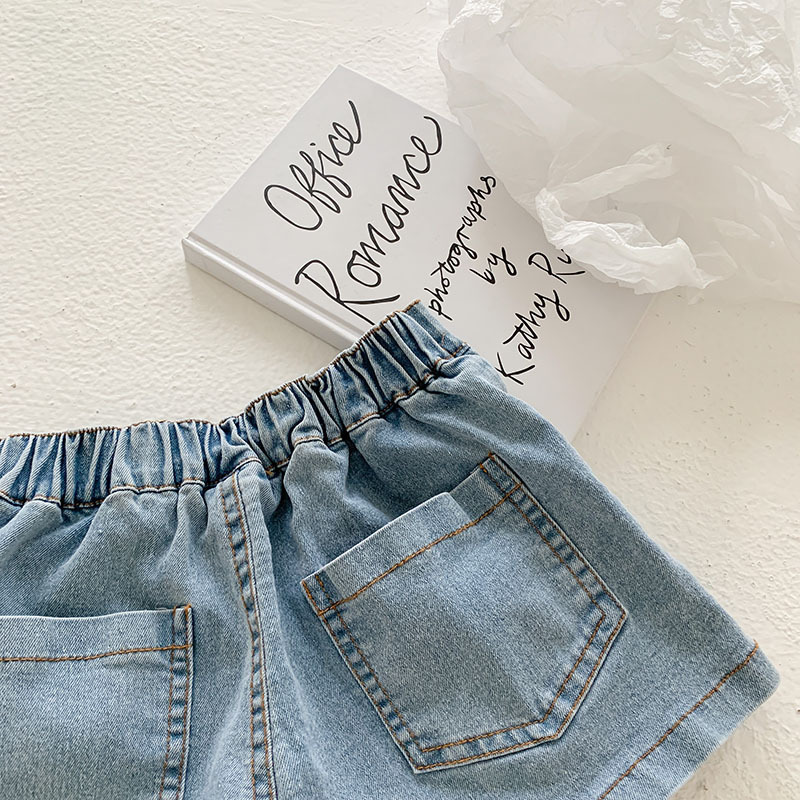 Office
Romance
photographs
by
Kathy